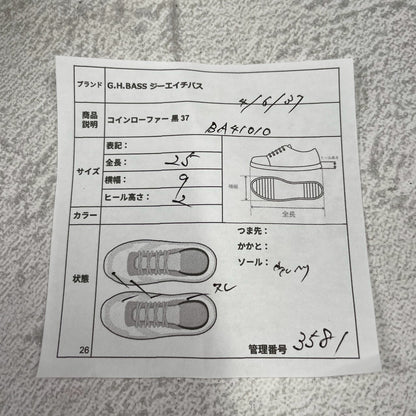 ブランド G.H.BASS ジーエイチバス
4/6/37
商品説明 コインローファー 黒 37
BA41010
サイズ
表記：
全長： 25
横幅： 9
ヒール高さ： 2
ヒール高さ
横幅
全長
カラー
状態
つま先：
かかと：
ソール：
スレ
26
管理番号 3581